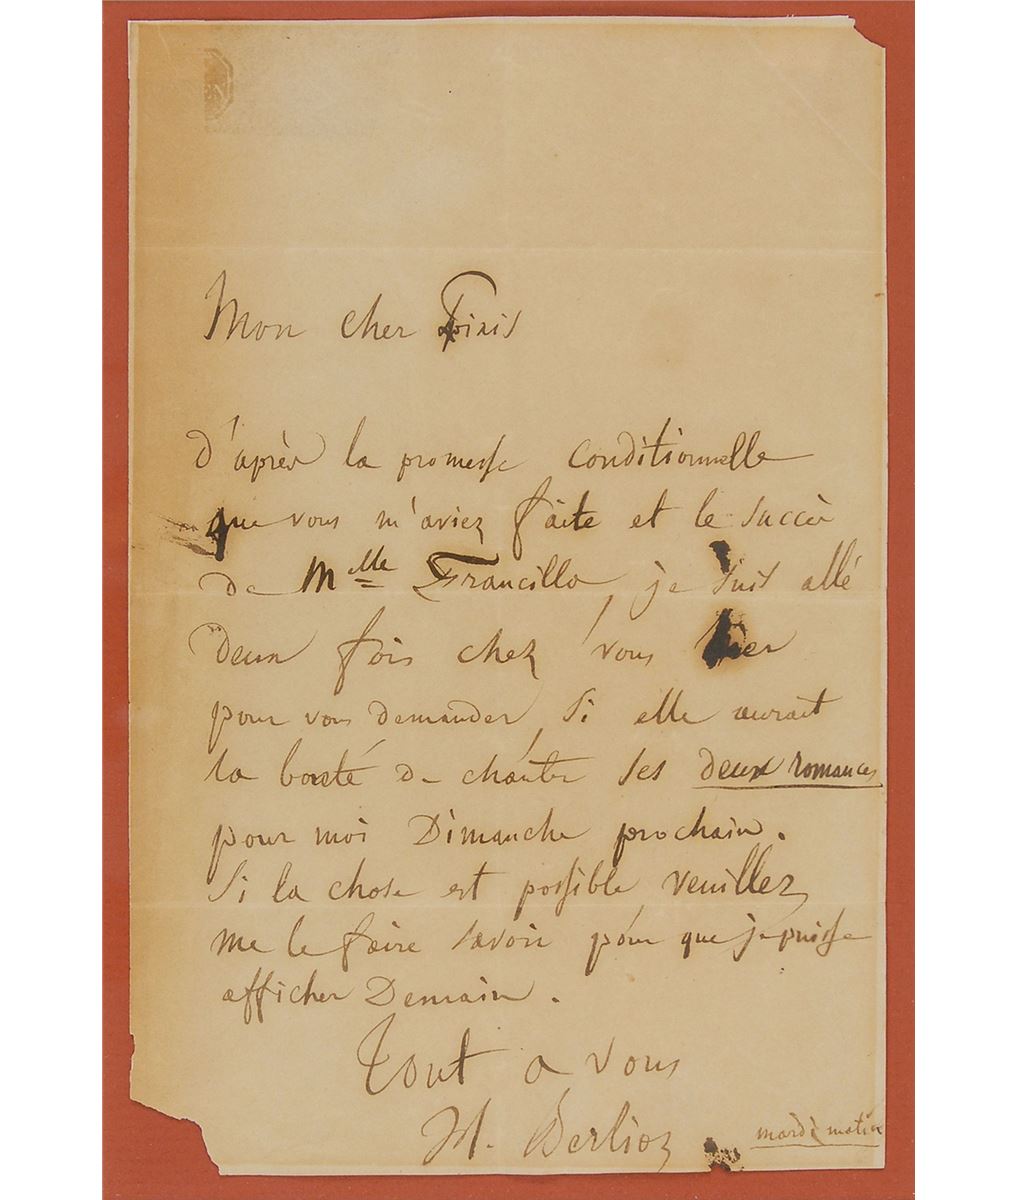 Mon cher Pixis
d'après la promesse conditionnelle
que vous m'aviez faite et le succès
de Mlle Francilla, je suis allé
deux fois chez vous hier
pour vous demander, si elle aurait
la bonté de chanter ses deux romances
pour moi Dimanche prochain.
Si la chose est possible, veuillez
me le faire savoir pour que je puisse
afficher Demain.
Tout a vous
H. Berlioz
mardi matin